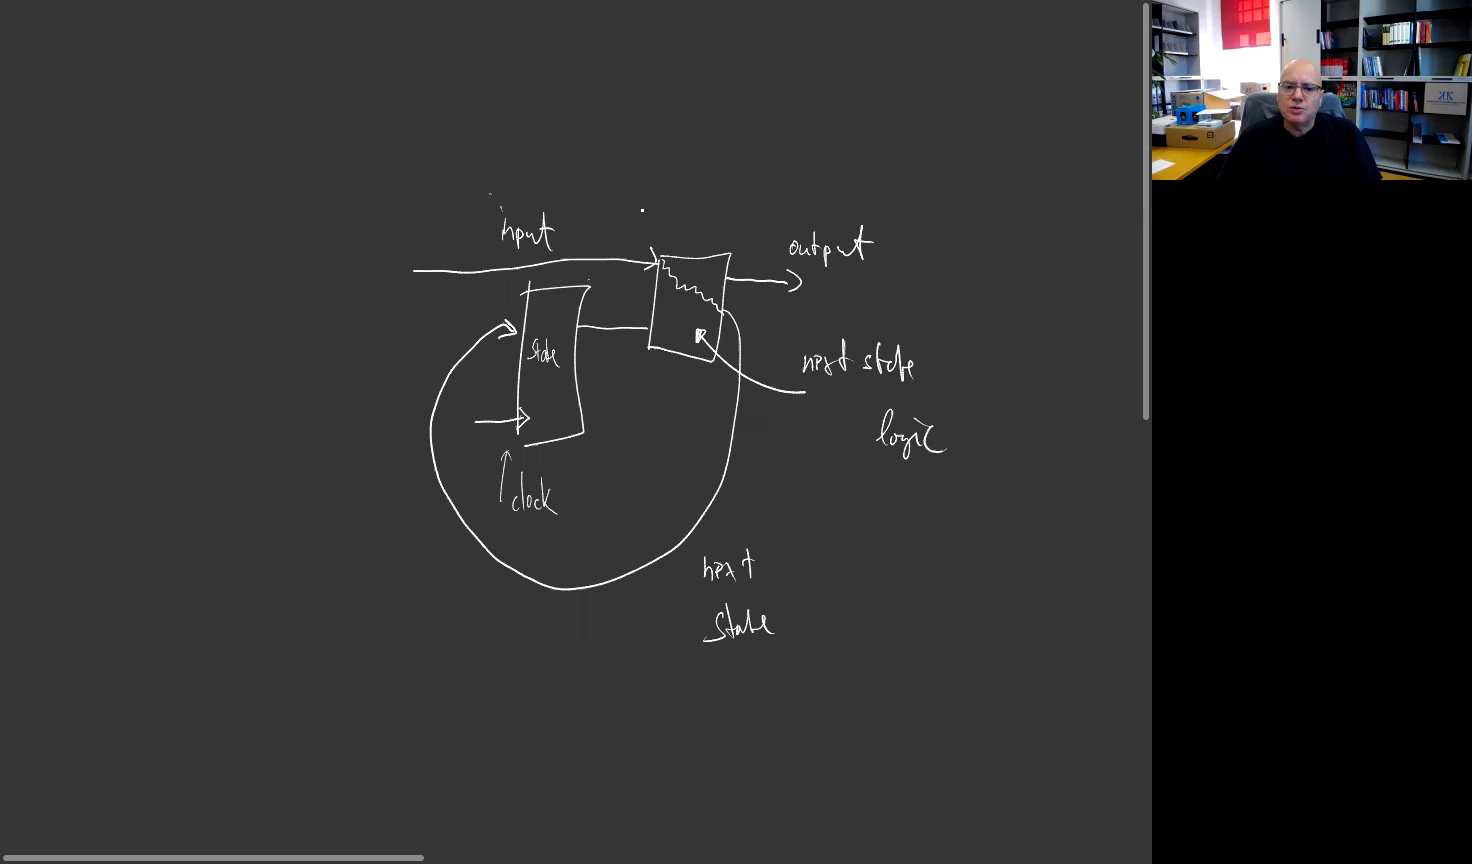 input
output
state
next state
logic
clock
next
state